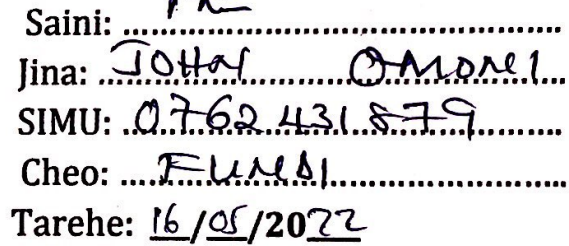 Saini:
Jina: JOHN OMONDI
SIMU: 0762 431 879
Cheo: FUNDI
Tarehe: 16/05/2022